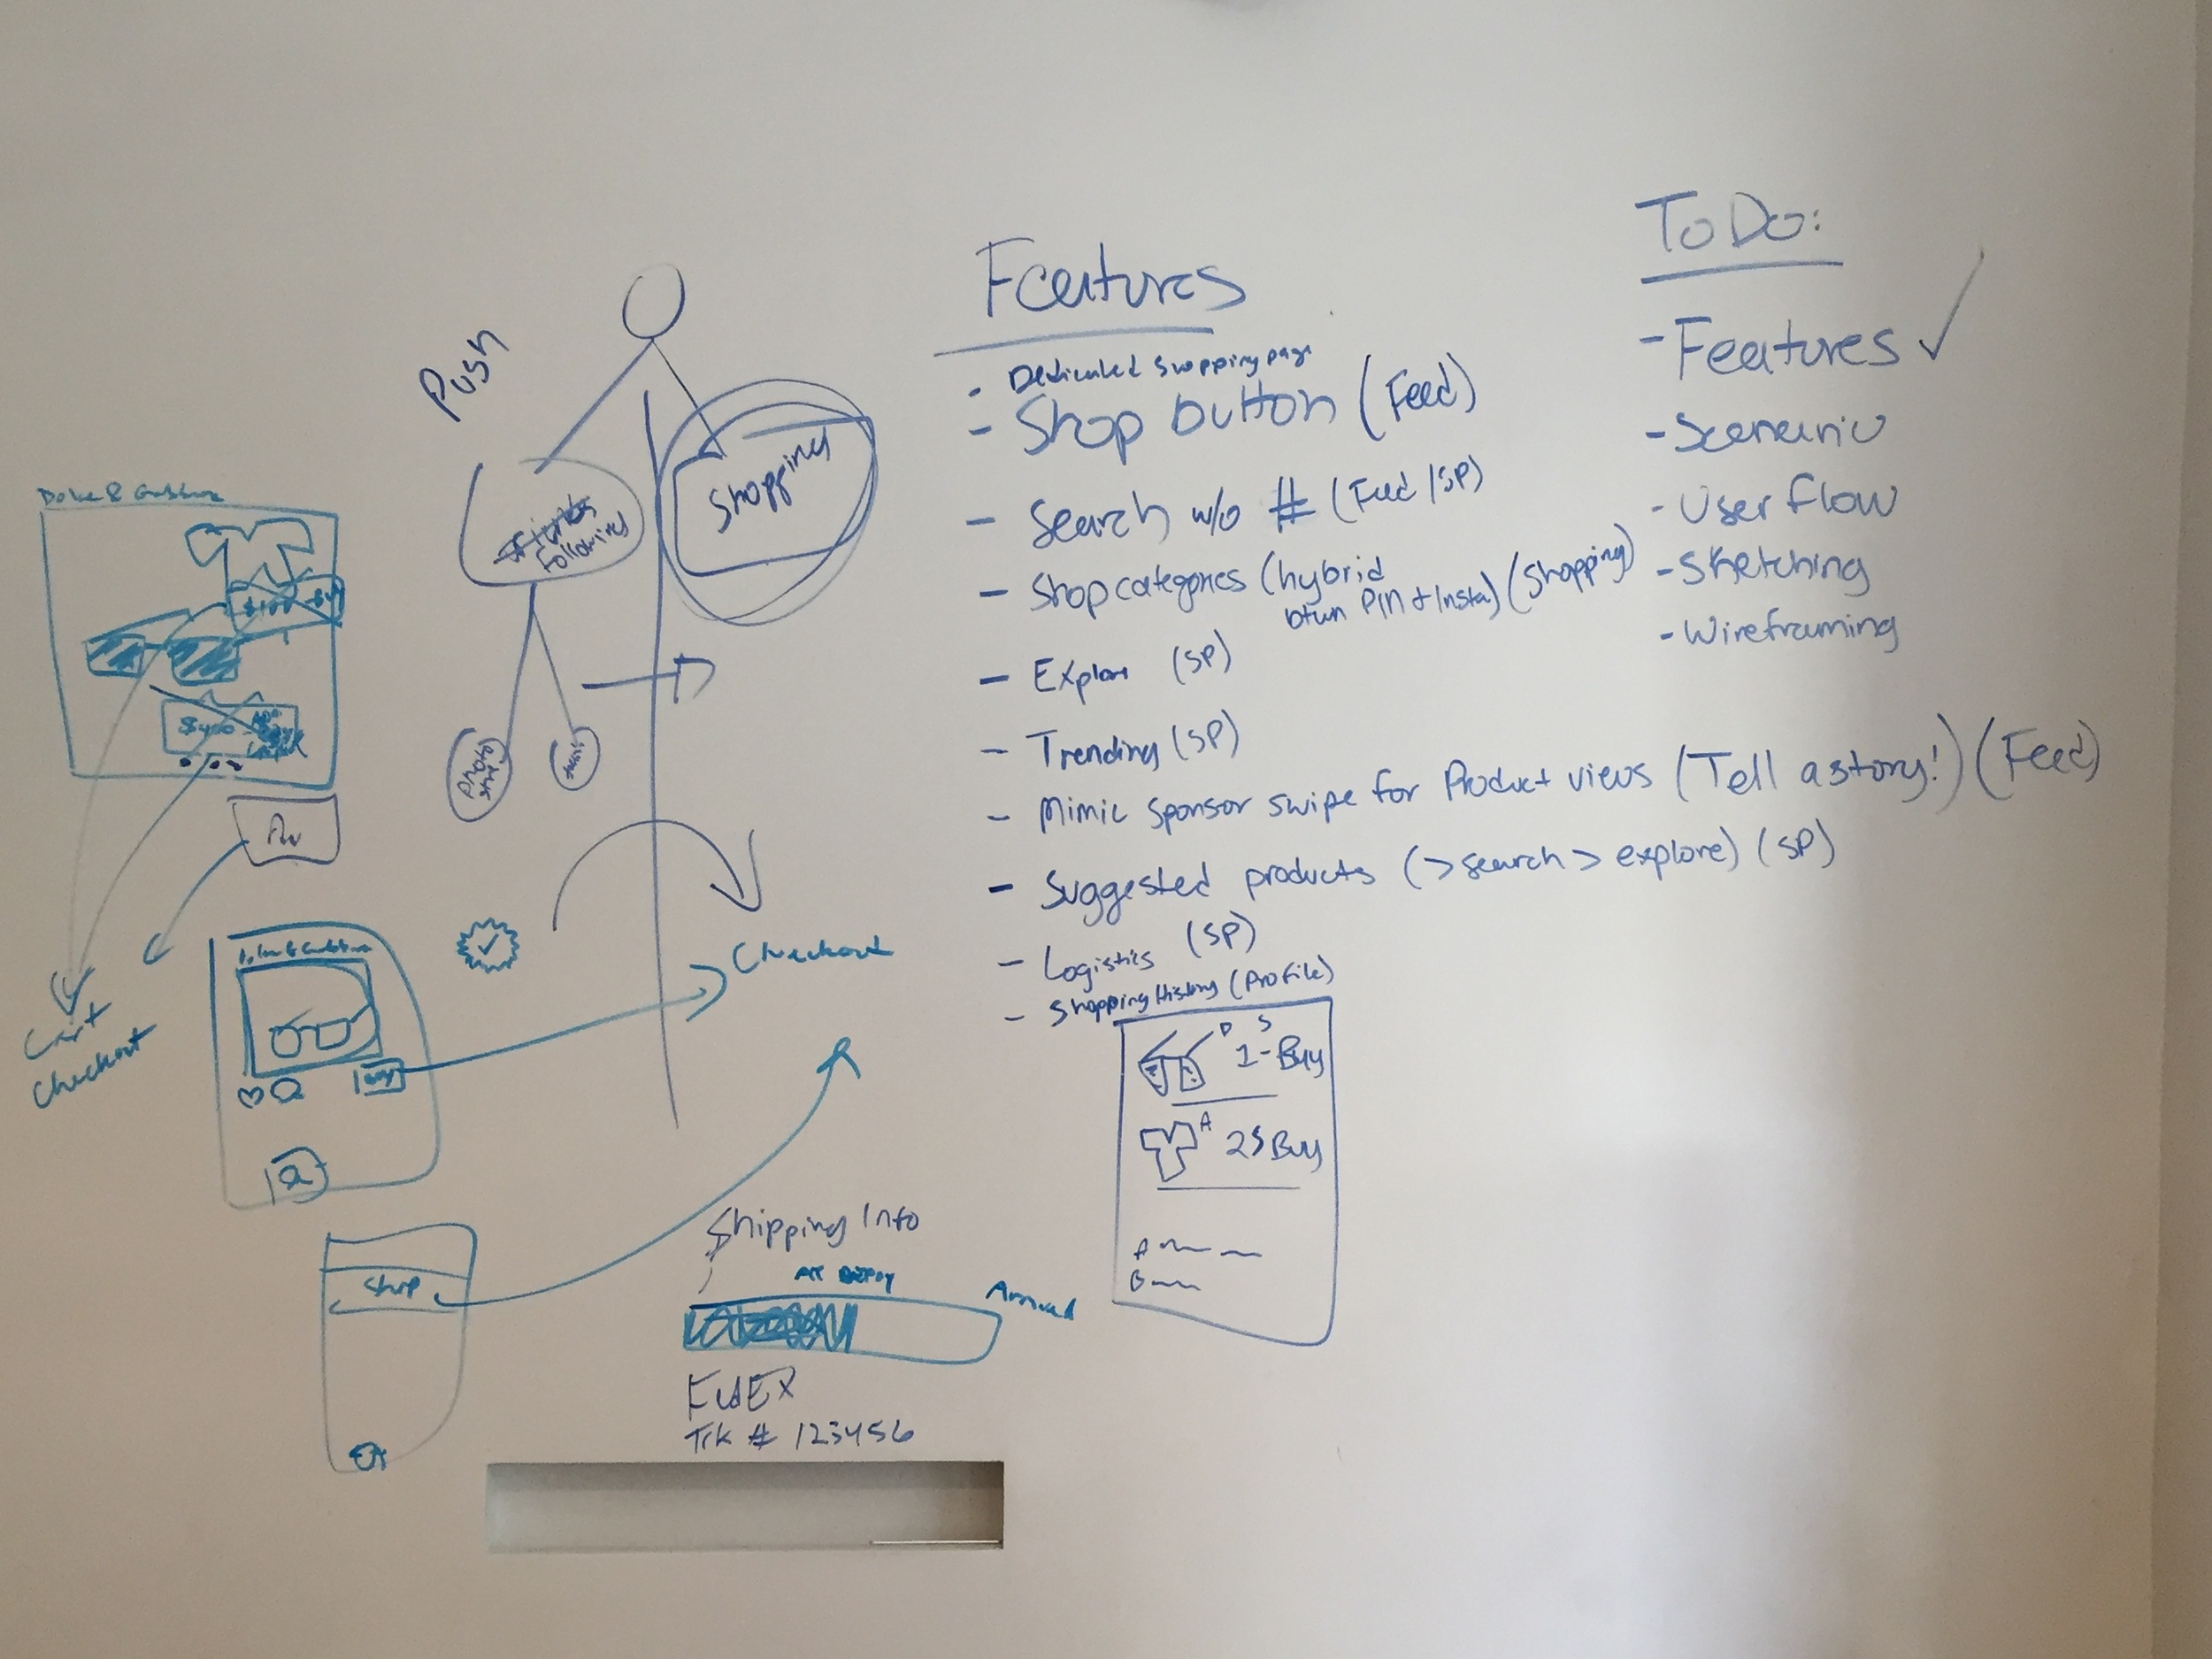 Push
Following
Shopping
Photo
Checkout
Cart
Checkout
Shop
Shipping Info
Arrived
FedEX
Trk # 123456
Features
- Dedicated shopping page
- Shop button (Feed)
- Search w/o # (Feed /SP)
- Shop categories (hybrid
btwn PIN + Insta) (Shopping)
- Explore (SP)
- Trending (SP)
- Mimic sponsor swipe for Product views (Tell a story!) (Feed)
- Suggested products (>search > explore) (SP)
- Logistics (SP)
- Shopping History (Profile)
1 - Buy
A 2 $ Buy
A
B
ToDo:
- Features ✓
- Scenario
- User flow
- Sketching
- Wireframing